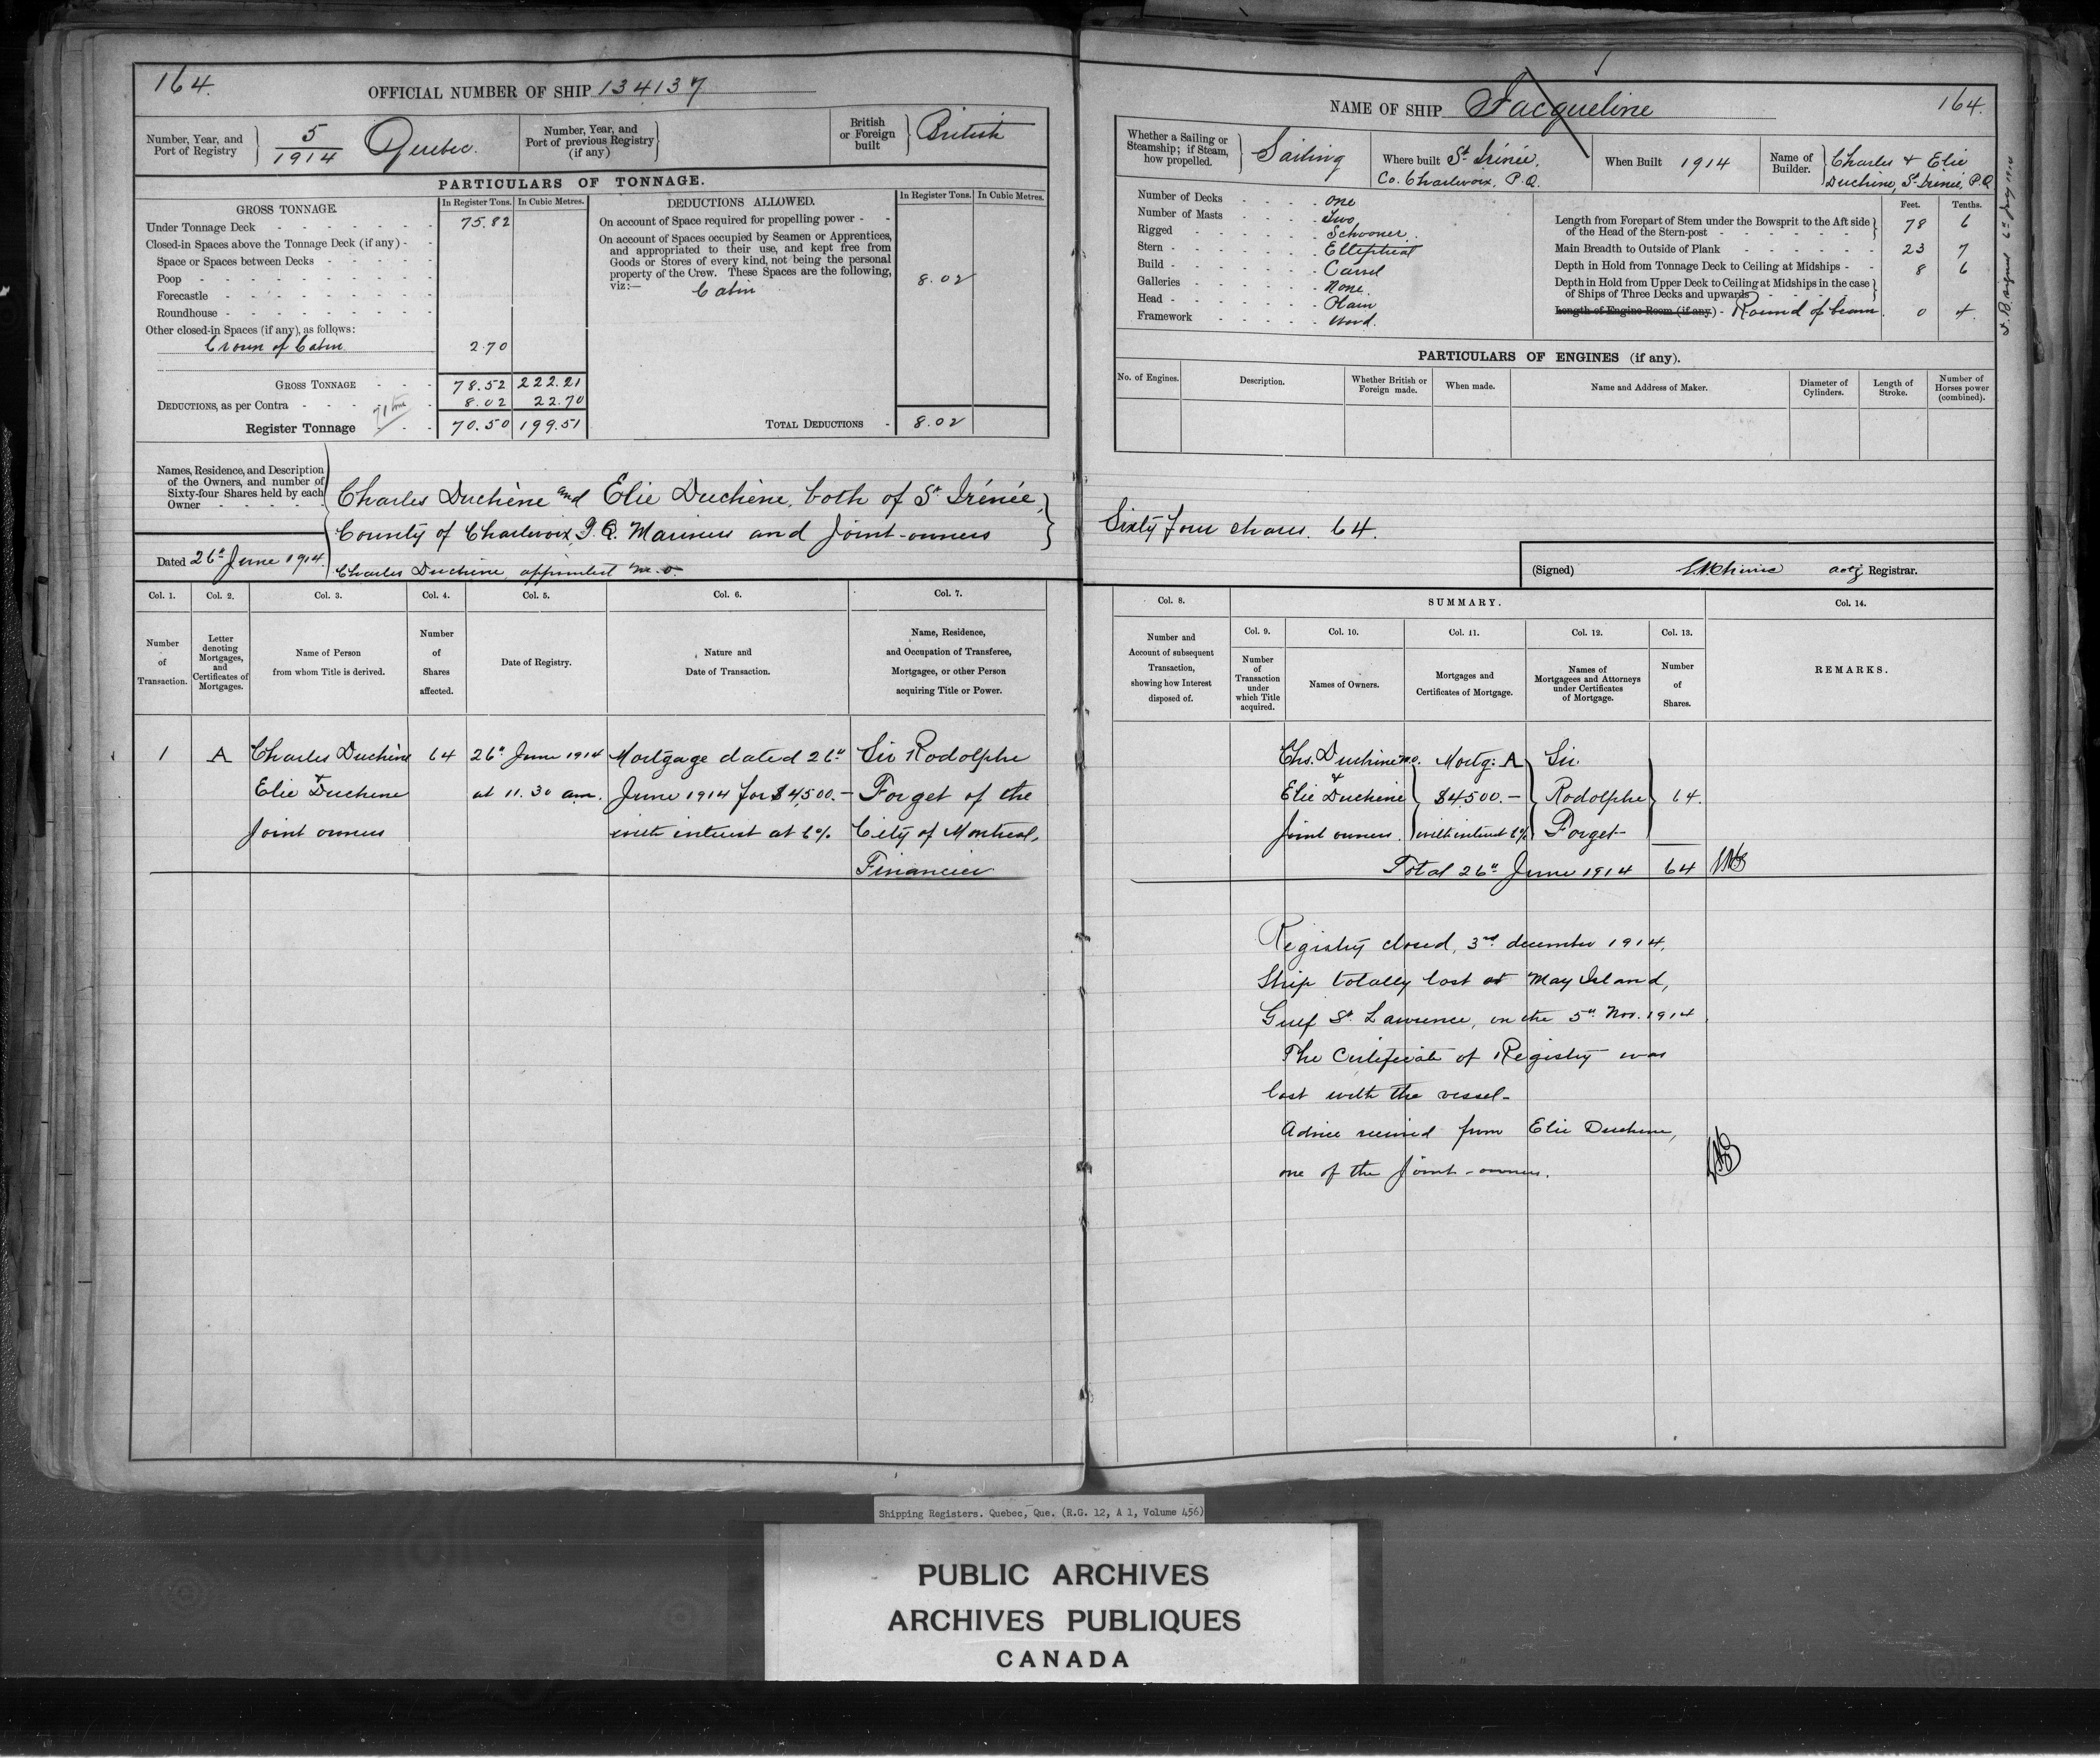 164.
OFFICIAL NUMBER OF SHIP 134137
Number, Year, and Port of Registry
5/1914 Quebec.
Number, Year, and Port of previous Registry (if any)
British or Foreign built
British
PARTICULARS OF TONNAGE.
GROSS TONNAGE.
In Register Tons. In Cubic Metres.
Under Tonnage Deck - 75.82
Closed-in Spaces above the Tonnage Deck (if any) -
Space or Spaces between Decks -
Poop -
Forecastle -
Roundhouse -
Other closed-in Spaces (if any), as follows:
Crown of Cabin 2.70
GROSS TONNAGE - 78.52 222.21
DEDUCTIONS, as per Contra - 8.02 22.70
71 tons
Register Tonnage - 70.50 199.51
DEDUCTIONS ALLOWED.
In Register Tons. In Cubic Metres.
On account of Space required for propelling power -
On account of Spaces occupied by Seamen or Apprentices,
and appropriated to their use, and kept free from
Goods or Stores of every kind, not being the personal
property of the Crew. These Spaces are the following,
viz:—
Cabin 8.02
TOTAL DEDUCTIONS - 8.02
Names, Residence, and Description
of the Owners, and number of
Sixty-four Shares held by each
Owner -
Charles Duchène and Elie Duchène, both of St Irénée,
County of Charlevoix, P.Q. Mariners and Joint-owners
Dated 26th June 1914.
Charles Duchène appointed M.O.
Col. 1. Col. 2. Col. 3. Col. 4. Col. 5. Col. 6. Col. 7.
Number of Transaction.
Letter denoting Mortgages, and Certificates of Mortgages.
Name of Person from whom Title is derived.
Number of Shares affected.
Date of Registry.
Nature and Date of Transaction.
Name, Residence, and Occupation of Transferee, Mortgagee, or other Person acquiring Title or Power.
1 A Charles Duchène 64 26" June 1914 Mortgage dated 26" Sir Rodolphe
& Elie Duchene at 11.30 am. June 1914 for $4,500.— Forget of the
Joint owners with interest at 6% City of Montreal,
Financier
NAME OF SHIP Jacqueline
164.
Whether a Sailing or Steamship; if Steam, how propelled.
Sailing
Where built St Irénée,
Co. Charlevoix, P.Q.
When Built 1914
Name of Builder.
Charles & Elie
Duchène, St Irénée, P.Q.
Number of Decks - One
Number of Masts - Two
Rigged - Schooner.
Stern - Elliptical
Build - Carvel
Galleries - None.
Head - Plain
Framework - Wood.
Feet. Tenths.
Length from Forepart of Stem under the Bowsprit to the Aft side
of the Head of the Stern-post - 78 6
Main Breadth to Outside of Plank - 23 7
Depth in Hold from Tonnage Deck to Ceiling at Midships - 8 6
Depth in Hold from Upper Deck to Ceiling at Midships in the case
of Ships of Three Decks and upwards -
Length of Engine Room (if any) - Round of beam. 0 4.
PARTICULARS OF ENGINES (if any).
No. of Engines.
Description.
Whether British or Foreign made.
When made.
Name and Address of Maker.
Diameter of Cylinders.
Length of Stroke.
Number of Horses power (combined).
Sixty four shares. 64.
(Signed) actg Registrar.
Col. 8. SUMMARY. Col. 14.
Col. 9. Col. 10. Col. 11. Col. 12. Col. 13.
Number and Account of subsequent Transaction, showing how Interest disposed of.
Number of Transaction under which Title acquired.
Names of Owners.
Mortgages and Certificates of Mortgage.
Names of Mortgagees and Attorneys under Certificates of Mortgage.
Number of Shares.
REMARKS.
Chs. Duchène M.O. Mortg: A Sir
& Elie Duchène $4,500.— Rodolphe 64.
Joint owners. with interest 6% Forget
Total 26" June 1914 64
Registry closed, 3rd december 1914.
Ship totally lost at May Island,
Gulf St. Lawrence, on the 5" Nov. 1914
The Certificate of Registry was
lost with the vessel-
Advice received from Elie Duchene,
one of the Joint-owners.
Shipping Registers. Quebec, Que. (R.G. 12, A 1, Volume 456)
PUBLIC ARCHIVES
ARCHIVES PUBLIQUES
CANADA